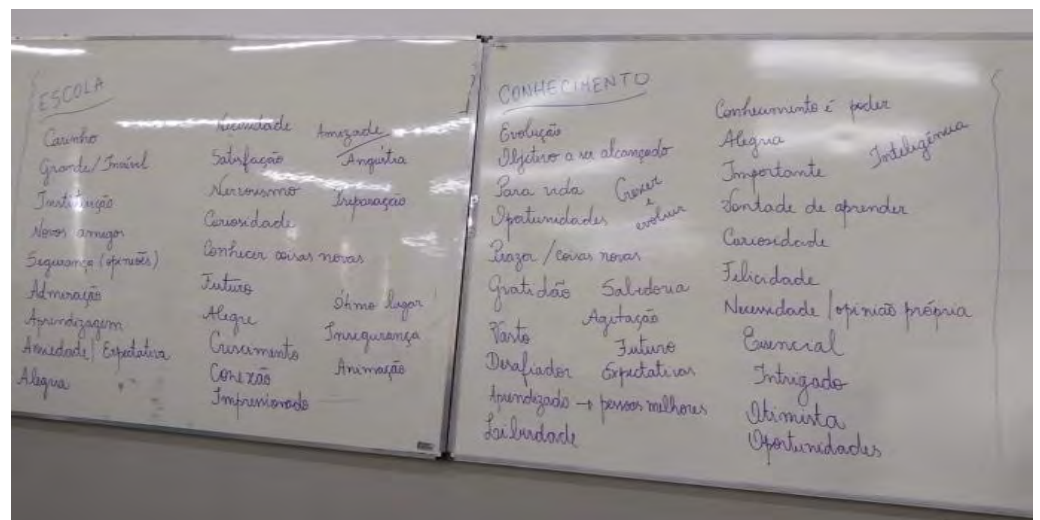 ESCOLA
Carinho
Grande/Incrível
Instituição
Novos amigos
Segurança (opiniões)
Admiração
Aprendizagem
Ansiedade/Expectativa
Alegria
Necessidade
Satisfação
Nervosismo
Curiosidade
Conhecer coisas novas
Futuro
Alegre
Crescimento
Conexão
Impressionado
Amizade
Angústia
Preparação
Ótimo lugar
Insegurança
Animação
CONHECIMENTO
Evolução
Objetivo a ser alcançado
Para vida
Crescer
e
evoluir
Oportunidades
Prazer/coisas novas
Gratidão
Sabedoria
Agitação
Vasto
Futuro
Desafiador
Expectativas
Aprendizado → pessoas melhores
Liberdade
Conhecimento é poder
Alegria
Inteligência
Importante
Vontade de aprender
Curiosidade
Felicidade
Necessidade/opinião própria
Essencial
Intrigado
Otimista
Oportunidades